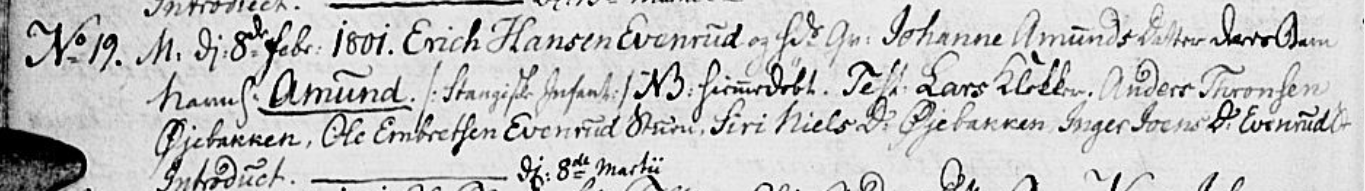 Introduct.
No 19. M: dj: 8de Febr: 1801. Erich Hansen Evenrud og Hds Qv: Johanne Amunds Datter deres Barn
Navnl. Amund. /: Stangiske Infant :/ NB: hiemedøbt. Test: Lars Klokker. Anders Thronsen
Øjebakken, Ole Embretsen Evenrud, Siri Niels D: Øjebakken Inger Joens D: Evenrud
Introduct. dj: 8de Martii